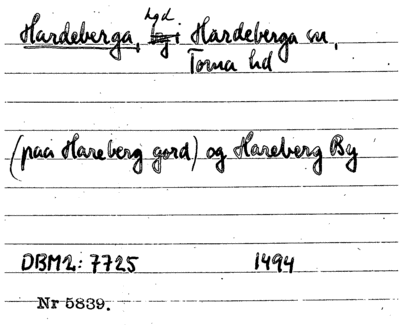 Hardeberga, hgd i Hardeberga sn,
Torna hd
(paa Hareberg gord) og Hareberg By
DBM2: 7725 1494
Nr 5839.